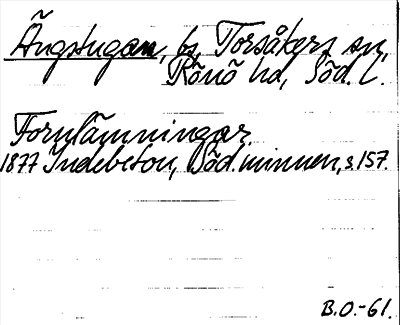 Ängstugan, bs, Torsåkers sn,
Rönö hd, Söd. L.
Fornlämningar.
1877 Indebetou, Söd. minnen, s. 157.
B.O.-61.